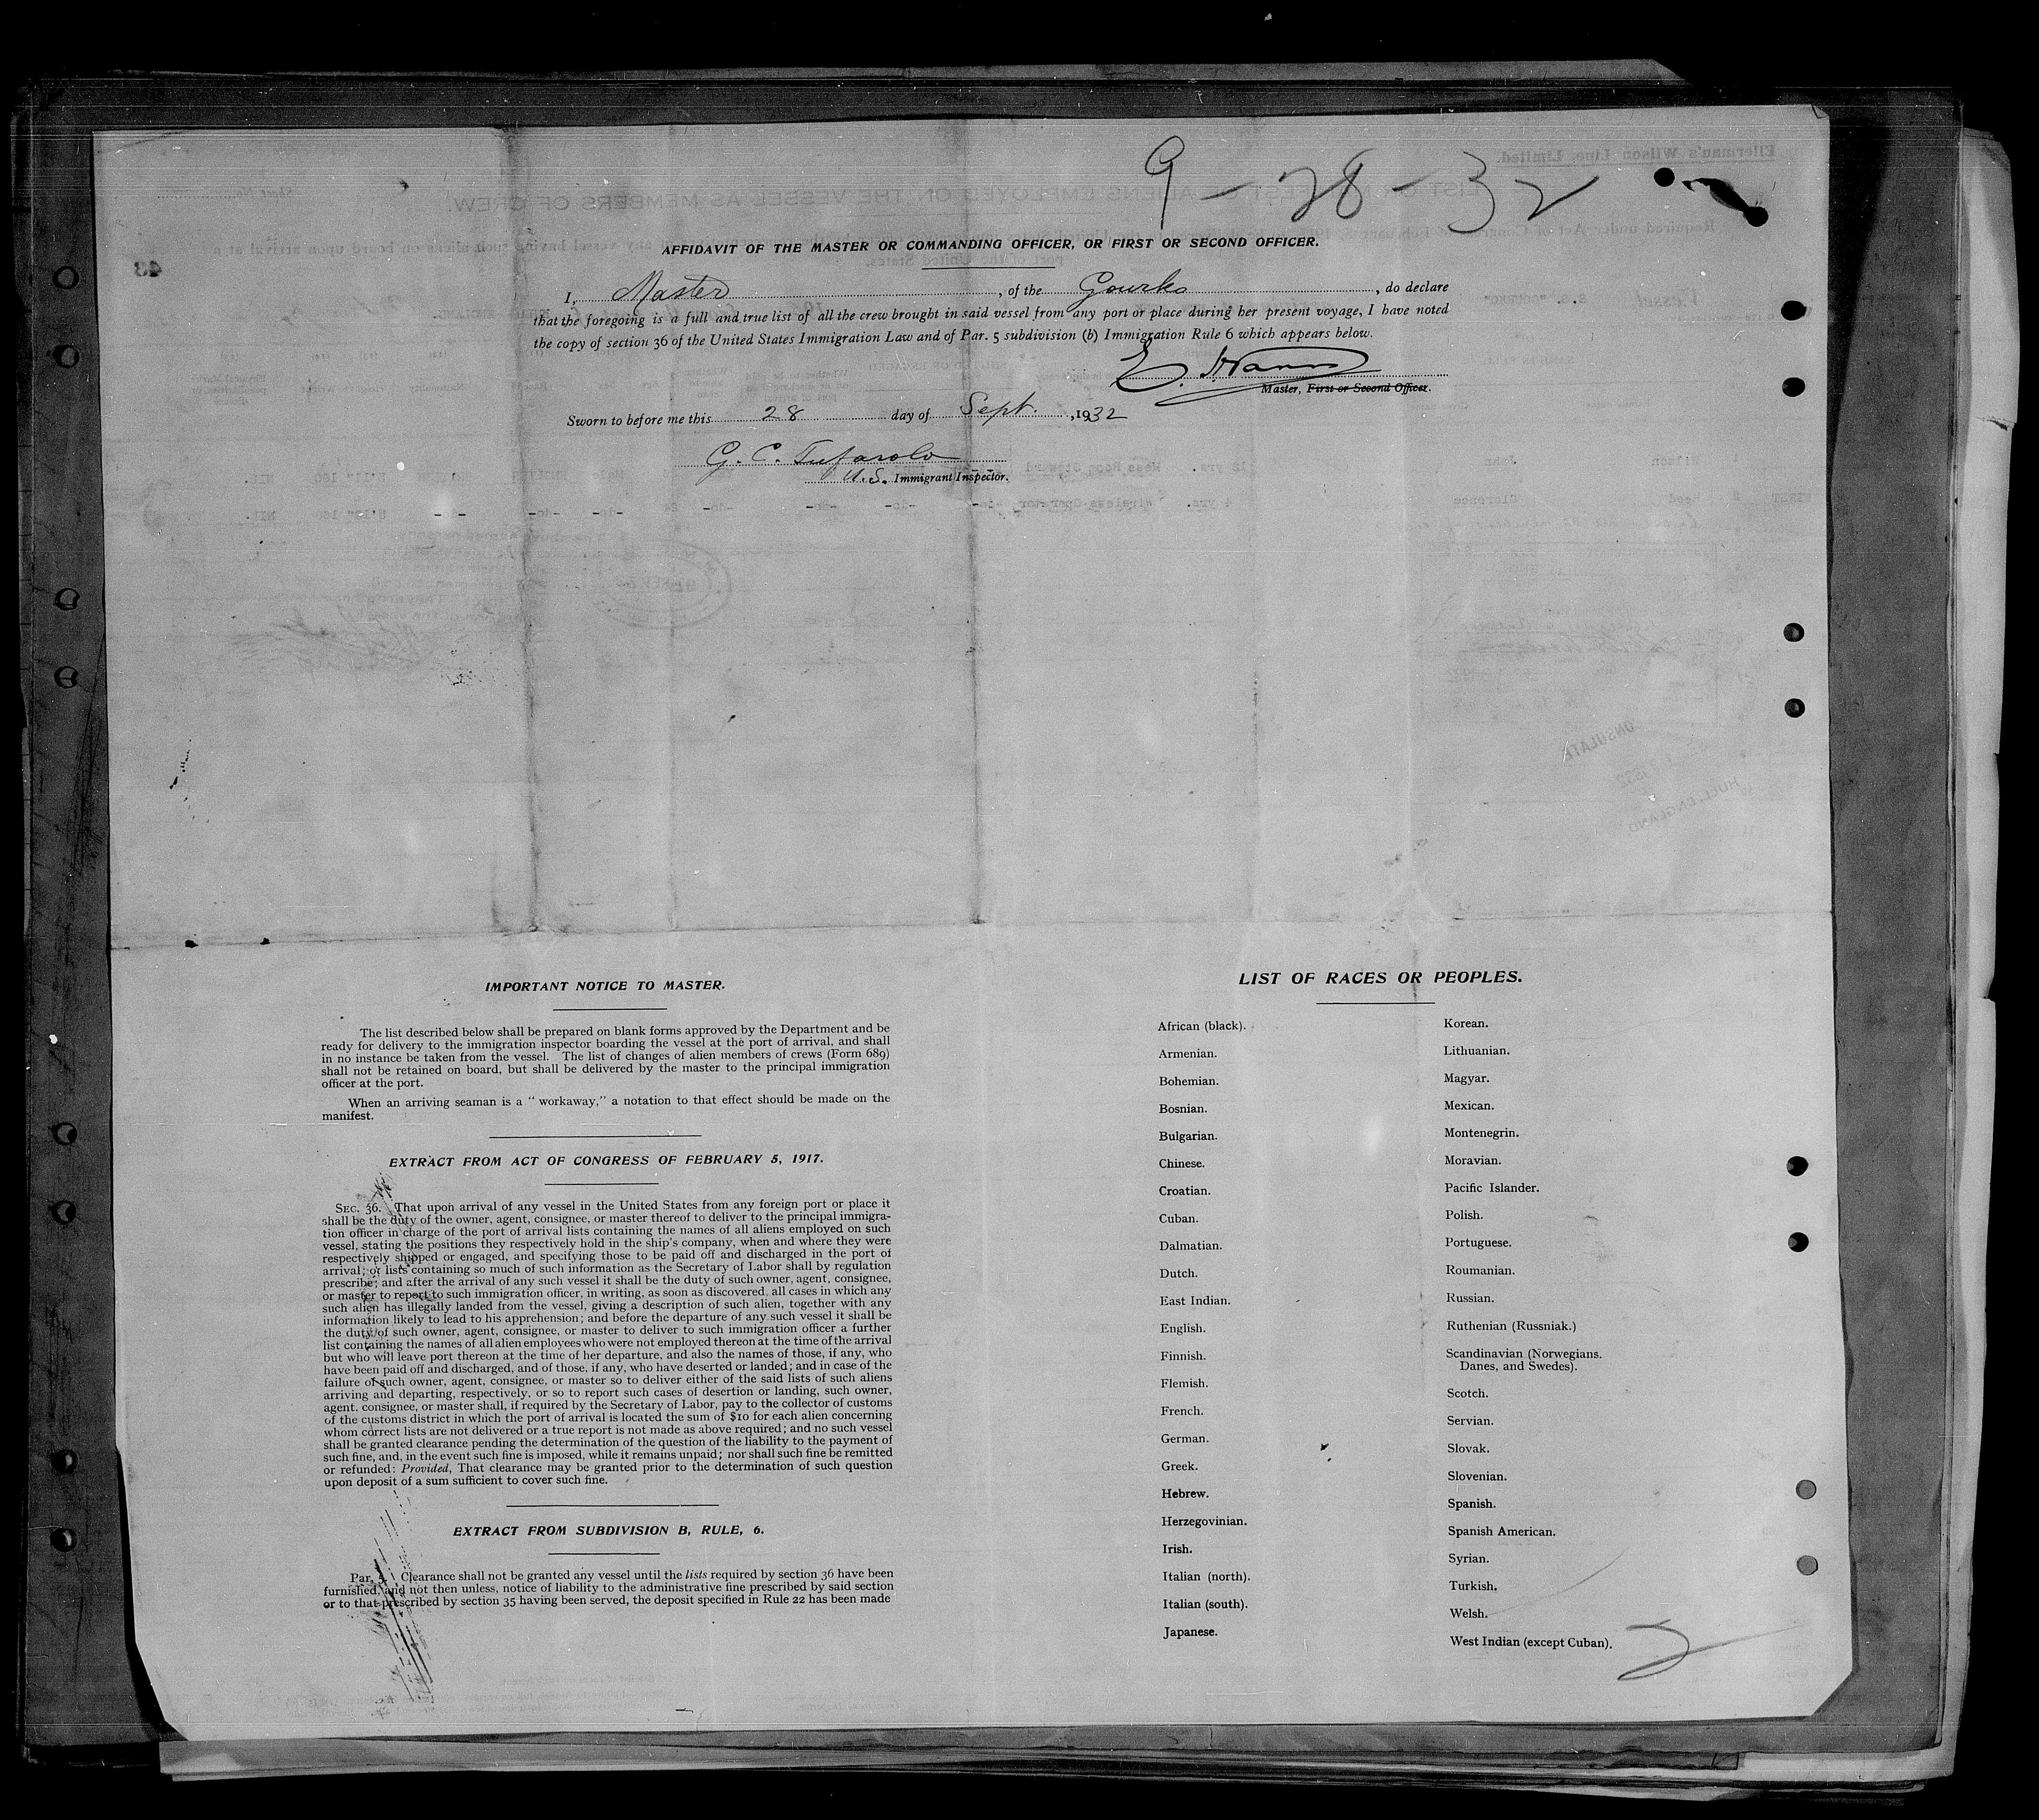 9-28-32
AFFIDAVIT OF THE MASTER OR COMMANDING OFFICER, OR FIRST OR SECOND OFFICER.
I, Master, of the Gourko, do declare
that the foregoing is a full and true list of all the crew brought in said vessel from any port or place during her present voyage, I have noted
the copy of section 36 of the United States Immigration Law and of Par. 5 subdivision (b) Immigration Rule 6 which appears below.
E.
Master, First or Second Officer.
Sworn to before me this 28 day of Sept., 1932
G. C. Tufarolo
U.S. Immigrant Inspector.
IMPORTANT NOTICE TO MASTER.
The list described below shall be prepared on blank forms approved by the Department and be
ready for delivery to the immigration inspector boarding the vessel at the port of arrival, and shall
in no instance be taken from the vessel. The list of changes of alien members of crews (Form 689)
shall not be retained on board, but shall be delivered by the master to the principal immigration
officer at the port.
When an arriving seaman is a " workaway," a notation to that effect should be made on the
manifest.
EXTRACT FROM ACT OF CONGRESS OF FEBRUARY 5, 1917.
SEC. 36. That upon arrival of any vessel in the United States from any foreign port or place it
shall be the duty of the owner, agent, consignee, or master thereof to deliver to the principal immigra-
tion officer in charge of the port of arrival lists containing the names of all aliens employed on such
vessel, stating the positions they respectively hold in the ship's company, when and where they were
respectively shipped or engaged, and specifying those to be paid off and discharged in the port of
arrival; or lists containing so much of such information as the Secretary of Labor shall by regulation
prescribe; and after the arrival of any such vessel it shall be the duty of such owner, agent, consignee,
or master to report to such immigration officer, in writing, as soon as discovered, all cases in which any
such alien has illegally landed from the vessel, giving a description of such alien, together with any
information likely to lead to his apprehension; and before the departure of any such vessel it shall be
the duty of such owner, agent, consignee, or master to deliver to such immigration officer a further
list containing the names of all alien employees who were not employed thereon at the time of the arrival
but who will leave port thereon at the time of her departure, and also the names of those, if any, who
have been paid off and discharged, and of those, if any, who have deserted or landed; and in case of the
failure of such owner, agent, consignee, or master so to deliver either of the said lists of such aliens
arriving and departing, respectively, or so to report such cases of desertion or landing, such owner,
agent. consignee, or master shall, if required by the Secretary of Labor, pay to the collector of customs
of the customs district in which the port of arrival is located the sum of $10 for each alien concerning
whom correct lists are not delivered or a true report is not made as above required; and no such vessel
shall be granted clearance pending the determination of the question of the liability to the payment of
such fine, and, in the event such fine is imposed, while it remains unpaid; nor shall such fine be remitted
or refunded: Provided, That clearance may be granted prior to the determination of such question
upon deposit of a sum sufficient to cover such fine.
EXTRACT FROM SUBDIVISION B, RULE, 6.
Par. 5. Clearance shall not be granted any vessel until the lists required by section 36 have been
furnished, and not then unless, notice of liability to the administrative fine prescribed by said section
or to that prescribed by section 35 having been served, the deposit specified in Rule 22 has been made
LIST OF RACES OR PEOPLES.
African (black).
Armenian.
Bohemian.
Bosnian.
Bulgarian.
Chinese.
Croatian.
Cuban.
Dalmatian.
Dutch.
East Indian.
English.
Finnish.
Flemish.
French.
German.
Greek.
Hebrew.
Herzegovinian.
Irish.
Italian (north).
Italian (south).
Japanese.
Korean.
Lithuanian.
Magyar.
Mexican.
Montenegrin.
Moravian.
Pacific Islander.
Polish.
Portuguese.
Roumanian.
Russian.
Ruthenian (Russniak.)
Scandinavian (Norwegians.
Danes, and Swedes).
Scotch.
Servian.
Slovak.
Slovenian.
Spanish.
Spanish American.
Syrian.
Turkish.
Welsh.
West Indian (except Cuban).
2